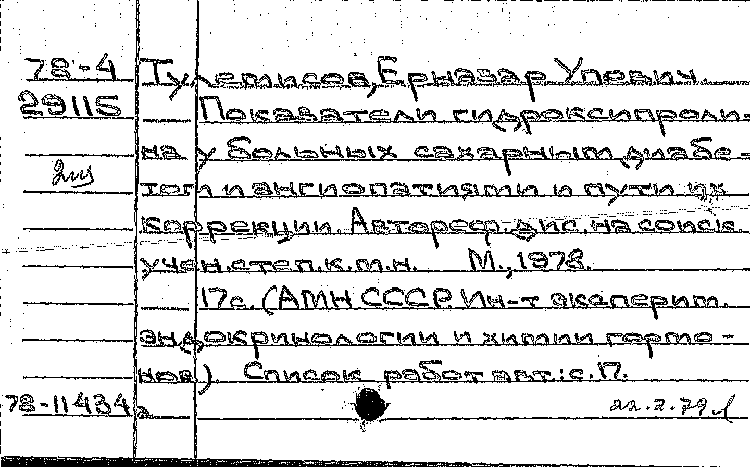 78-4 Тулетисов, Ерназар Упевич.
29115 Показатели гидроксипроли-
на у больных сахарным диабе-
том и ангиопатиями и пути их
коррекции. Автореф. дис. на соиск.
учен. степ. к.м.н. М., 1978.
17с. (АМН СССР. Ин-т эксперим.
эндокринологии и химии гормо-
нов). Список работ авт.: с. 17.
78-11434